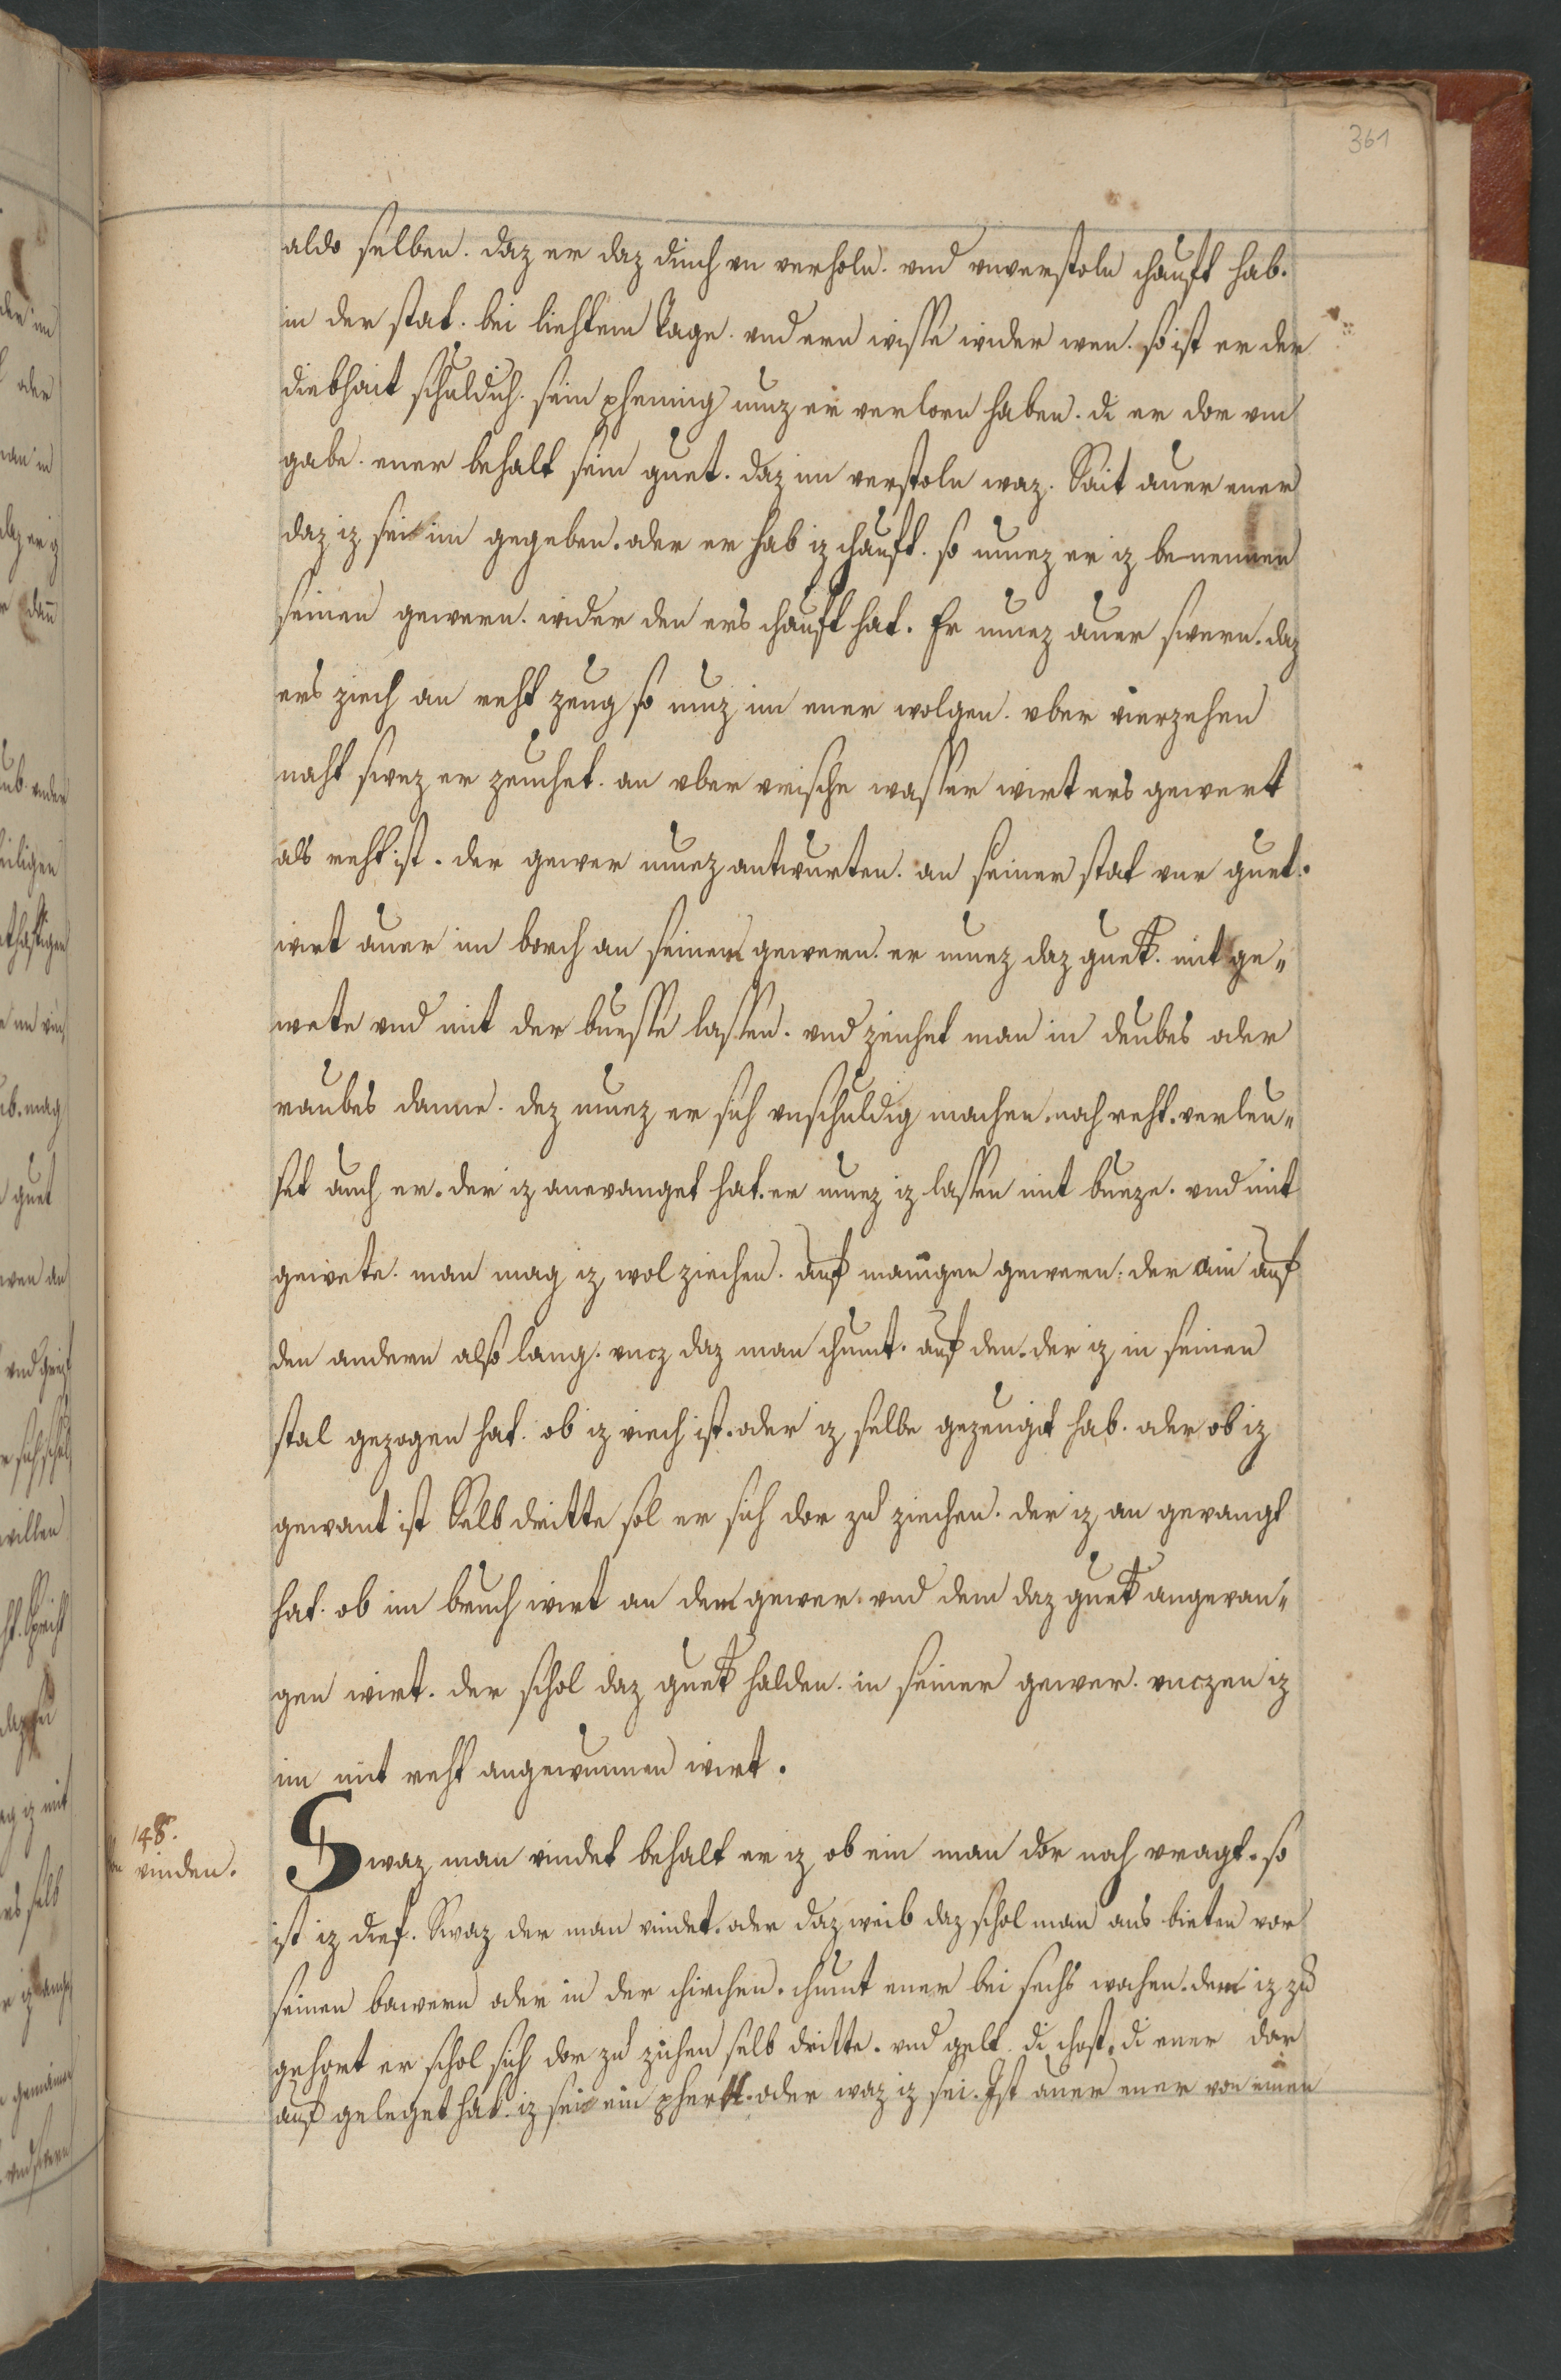 361
aldo selben. daz er daz dinch vn verholn. vnd vnverstoln chauft hab.
in der stat. bei liehtem tage. vnd ern wisse wider wen. so ist er der
diebhait schuldich. sein phening muz er verlorn haben. di er dor vm
gabe. ener behalt sein guet. daz im verstoln waz. Sait auer ener
daz iz sei im gegeben. oder er hab iz chauft. so muez er iz benennen
seinen gewern. wider den ers chauft hat. Er muez auer swern. daz
ers ziech an reht zeug so muz im ener volgen. vber vierzehen
naht swez er zeuchet. an vber vrische wasser wirt ers gewert
als reht ist. der gewer muez antwurten. an seiner stat vur guet.
wirt auer im borch an seinem gewern. er muez daz guet. mit ge„
wete vnd mit der buesse lassen. vnd zeichet man in deubes oder
raubes danne. dez muez er sich vnschuldig machen. nach reht. verleu„
set auch er. der iz anevanget hat. er muez iz lassen mit bueze. vnd mit
gewete. man mag iz wol ziechen. auf manigen gewern. der ain auf
den andern also lang. vncz daz man chumt. auf den. der iz in seinen
stal gezogen hat. ob iz viech ist. oder iz selbe gezeugit hab. oder ob iz
gewant ist Selb dritte sol er sich dor zu ziechen. der iz an gevangt
hat. ob im bruch wirt an dem gewer. vnd dem daz guet angevan„
gen wirt. der schol daz guet halden. in seiner gewer. vnczen iz
im mit reht angewunnen wirt.
148.
vinden.
Swaz man vindet behalt er iz ob ein man dor nach vragt. so
ist iz dief. Swaz der man vindet. oder daz weib daz schol man aus bieten vor
seinen bawern oder in der chirchen. chumt ener bei sechs wochen. dem iz zu
gehort er schol sich dor zu zichen selb dritte. vnd gelt. di chost. di ener dar
auf geleget hat. iz sei ein phert. oder waz iz sei. Ist auer ener von einen